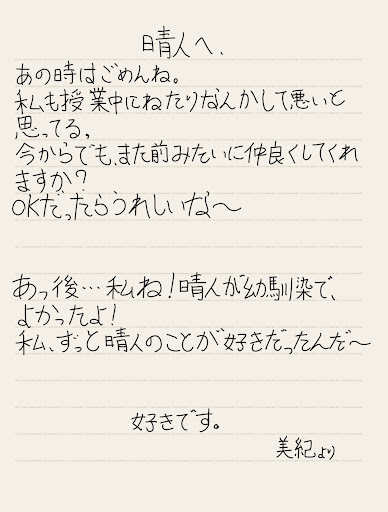 晴人へ、
あの時はごめんね。
私も授業中にねたりなんかして悪いと
思ってる,
今からでも、また前みたいに仲良くしてくれ
ますか?
OKだったらうれしいな〜
あっ後…私ね!晴人が幼馴染で、
よかったよ!
私、ずっと晴人のことが好きだったんだ〜
好きです。
美紀より